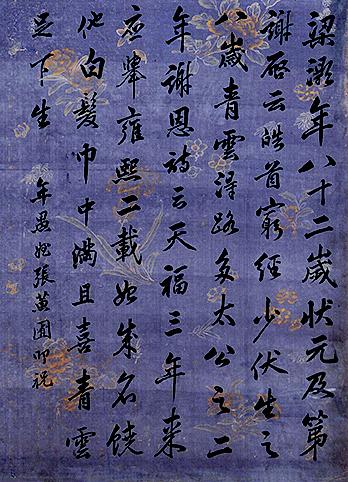 梁灝年八十二歲狀元及第
謝啟云皓首窮經少伏生之
八歲青雲得路多太公之二
年謝恩詩云天福三年來
應舉雍熙二載始成名饒
他白髮巾中滿且喜青雲
足下生
年愚姪張黃圃叩祝